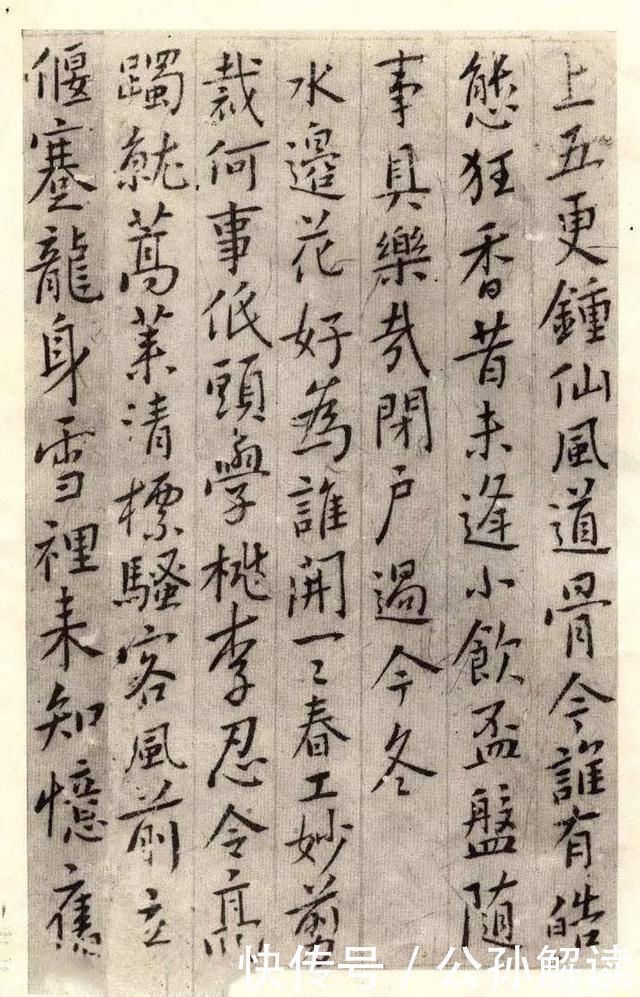 上五更鍾仙風道骨今誰有皓
態狂香昔未逢小飲盃盤随
事具樂哉閉戶過今冬
水邊花好為誰開一〻春工妙剪
裁何事低頭學桃李忍令高
躅就蒿萊清標騷客風前立
偃蹇龍身雪裡来知憶舊
快传号 / 公孙解读